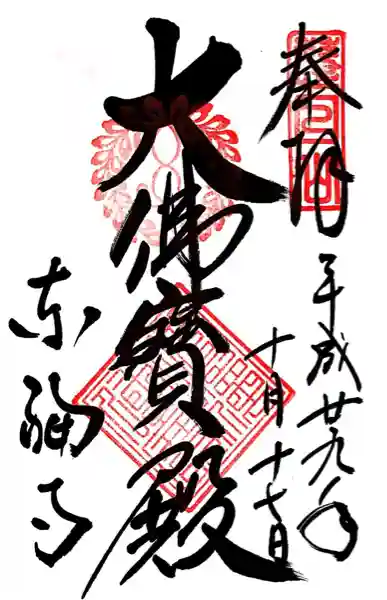 奉拝
平成廿九年
十月十七日
大佛寶殿
東福寺